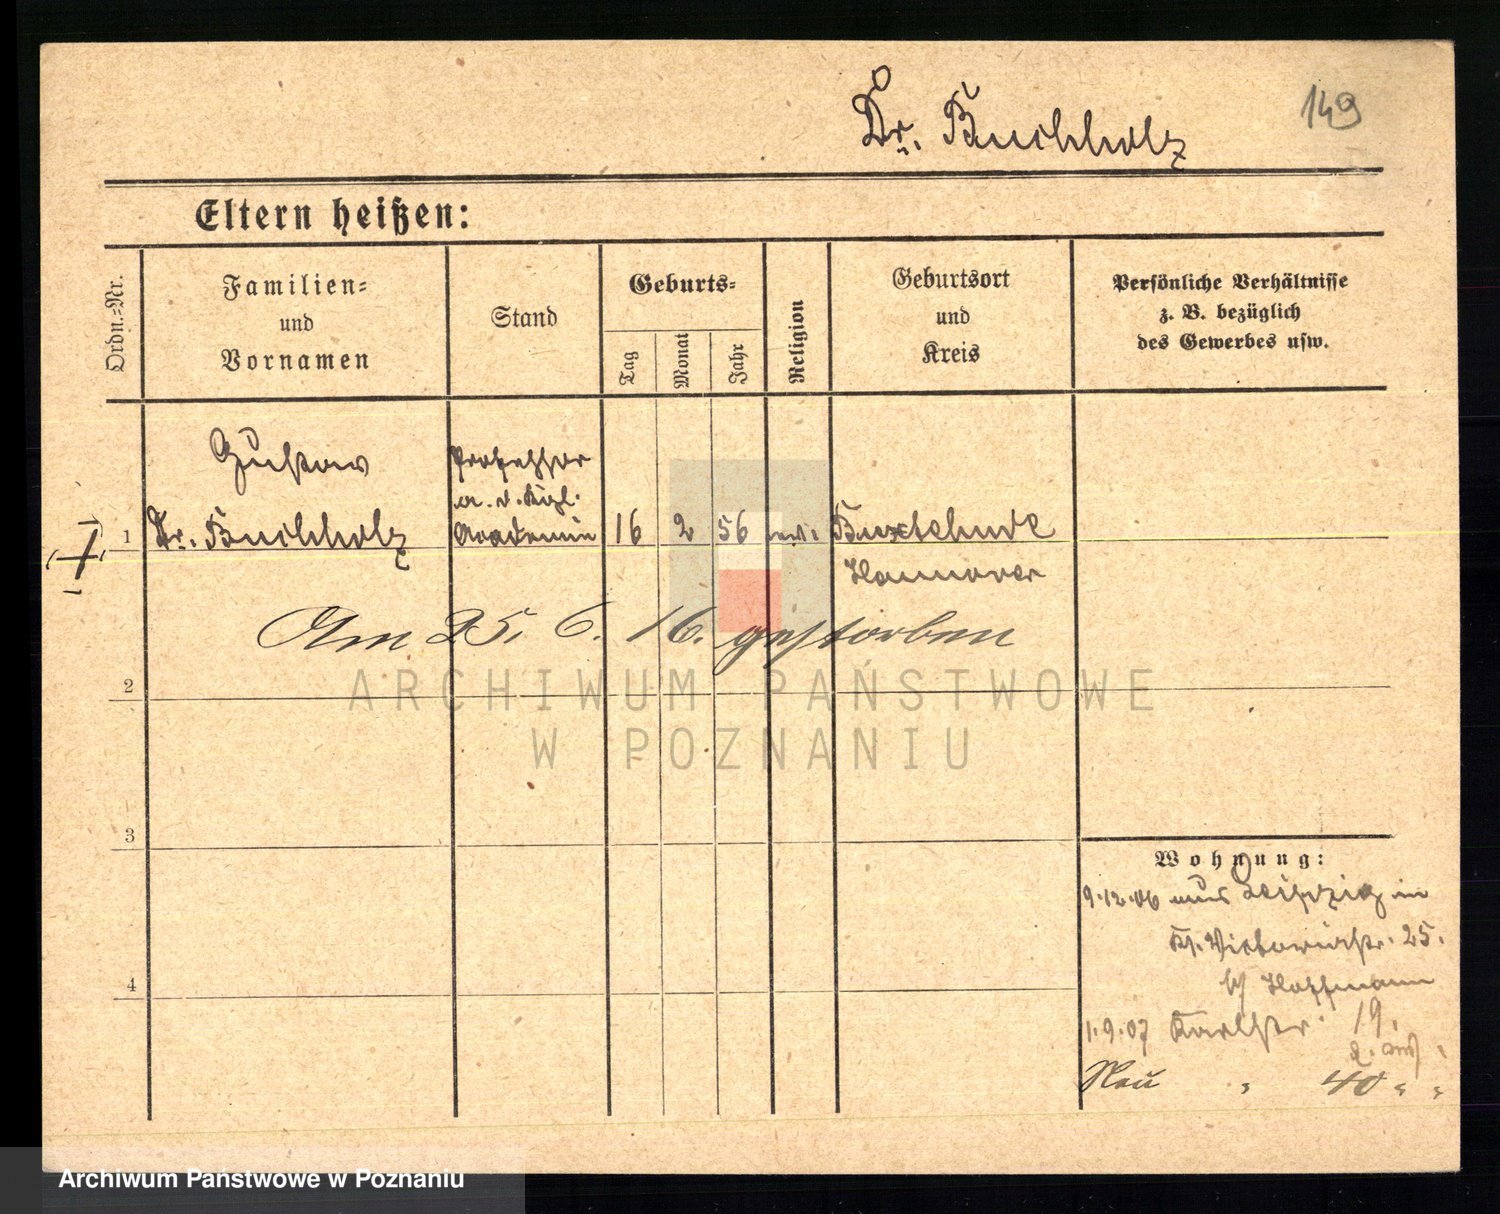 Dr. Buchholz
149
Eltern heißen:
Ordn.-Nr.
Familien-
und
Vornamen
Stand
Geburts-
Tag
Monat
Jahr
Religion
Geburtsort
und
Kreis
Persönliche Verhältnisse
z. B. bezüglich
des Gewerbes usw.
Gustav
Professor
a. d. Kgl.
1 Dr. Buchholz Akademie 16 2 56 Buxtehude
Hannover
Am 25. 6. 16. gestorben
2
ARCHIWUM PAŃSTWOWE
W POZNANIU
3
Wohnung:
9.12.06 aus Leipzig in
25.
4
Hoffmann
1.9.07 Karlstr. 19.
Neu " 40 " "
Archiwum Państwowe w Poznaniu